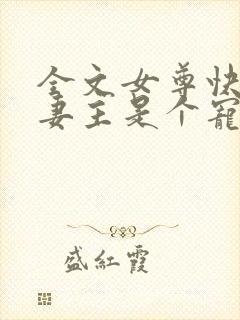 全文女尊快
妻主是个寵
盛紅霞